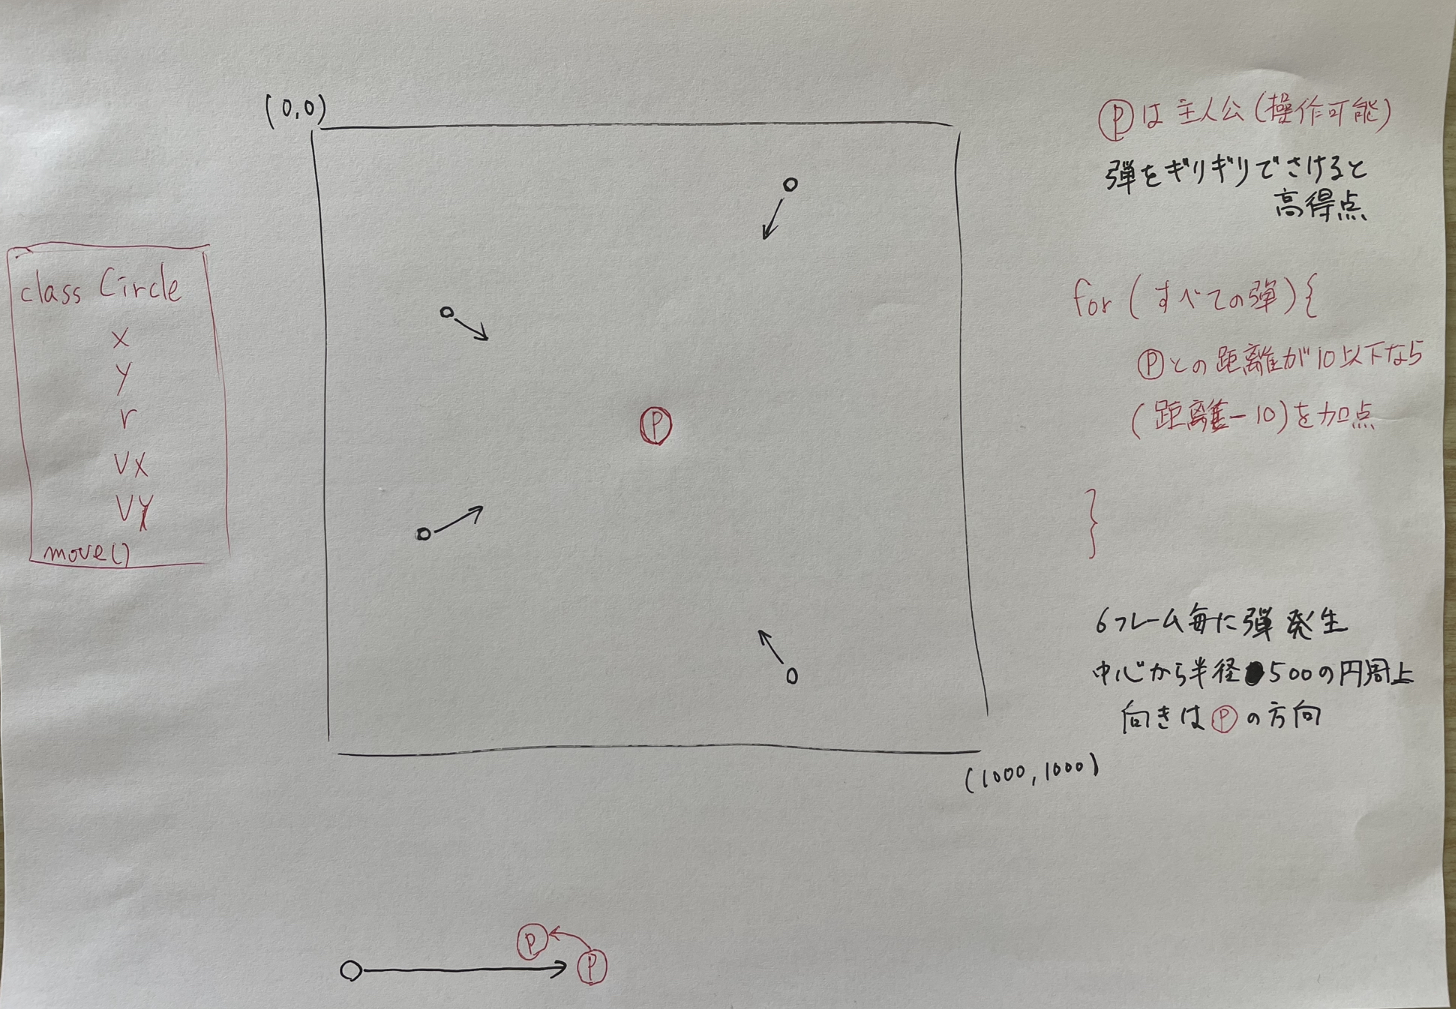 (0,0)
class Circle
x
y
r
vx
vy
move()
P
(1000,1000)
Pは主人公(操作可能)
弾をギリギリでさけると
高得点
for(すべての弾){
Pとの距離が10以下なら
(距離-10)を加点
}
6フレーム毎に弾発生
中心から半径500の円周上
向きはPの方向
P
P